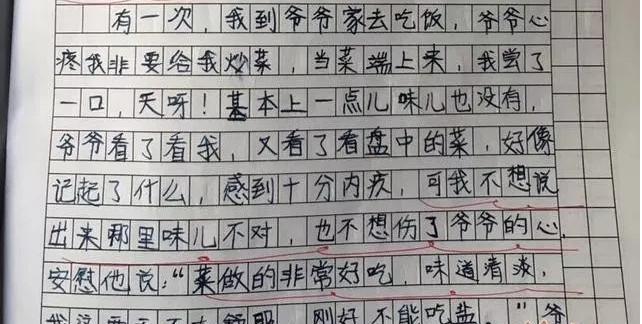 有一次，我到爷爷家去吃饭，爷爷心
疼我非要给我炒菜，当菜端上来，我尝了
一口，天呀！基本上一点儿味儿也没有，
爷爷看了看我，又看了看盘中的菜，好像
记起了什么，感到十分内疚，可我不想说
出来那里味儿不对，也不想伤了爷爷的心，
安慰他说：“菜做的非常好吃，味道清淡，
刚好不能吃盐。”爷